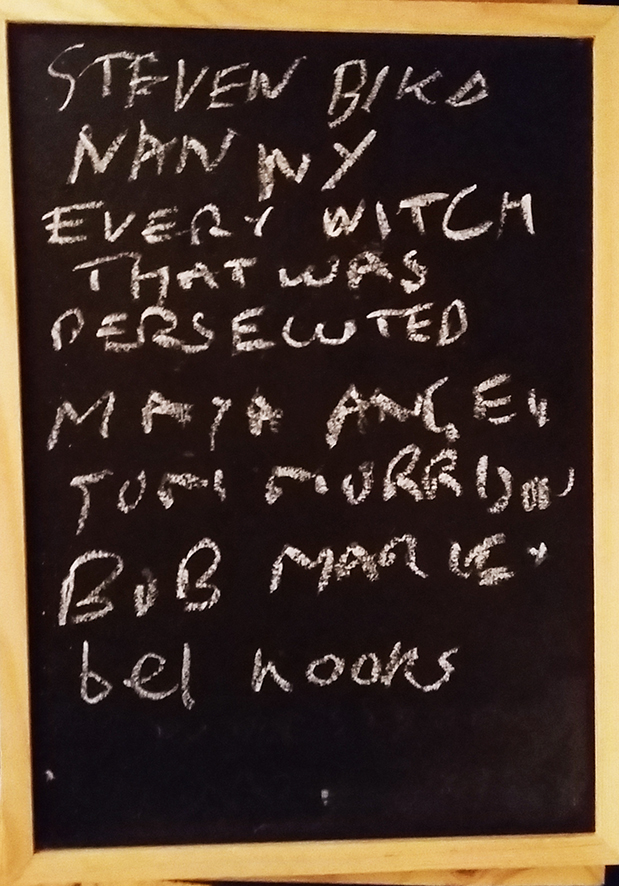 STEVEN BIKO
NANNY
EVERY WITCH
THAT WAS
PERSECUTED
MAYA ANGEL
TONI MORRISON
BOB MARLEY
bel hooks